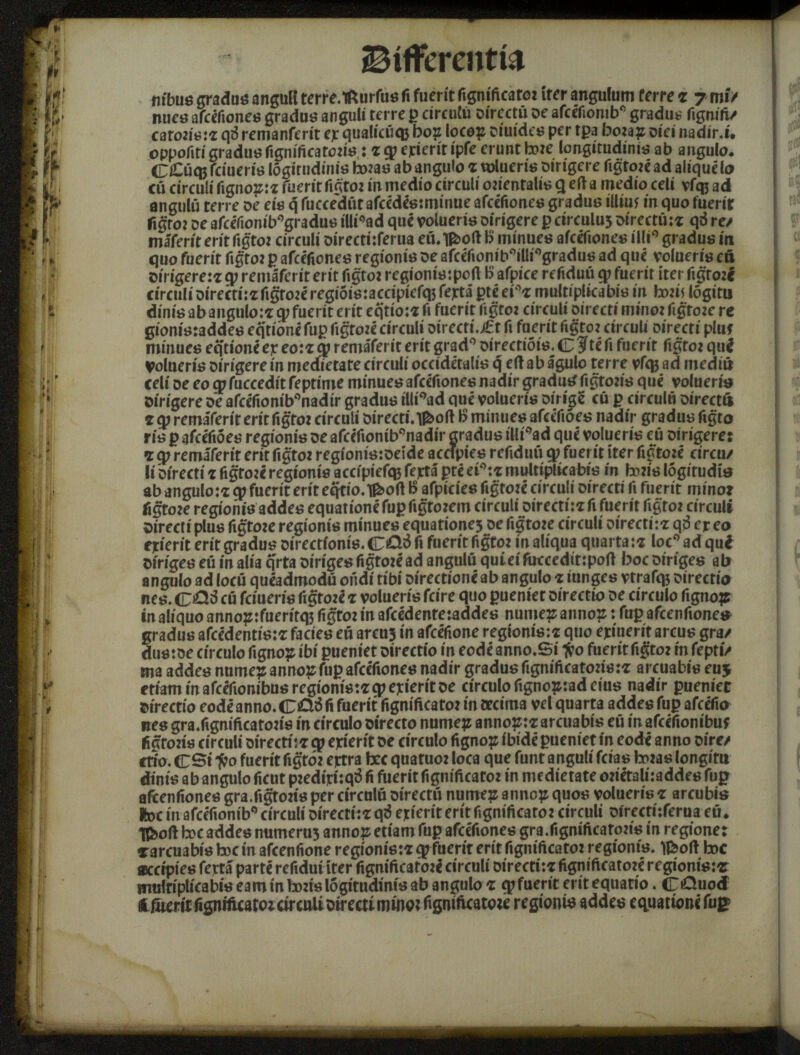 Differentia
nibus gradus anguli terre. Rursus si fuerit significator iter angulum terre ⁊ 7 mi/
nues ascēsiones gradus anguli terre ꝑ circulū directū de ascēsionibꝰ gradus signifi/
catoris:⁊ qđ remanserit ex qualicūqꝫ hoꝝ locoꝝ diuides per tpa horaꝝ diei nadir.i.
oppositi gradus significatoris : ⁊ ꝙ exierit ipse erunt hore longitudinis ab angulo.
¶Cūqꝫ scieueris lōgitudinis horas ab angulo ⁊ volueris dirigere sigtorē ad aliquē lo
cū circuli signoꝝ:⁊ fuerit sigtor in medio circuli orientalis q est a medio celi vsqꝫ ad
angulū terre de eis q̄ succedūt ascēdēs:minue ascēsiones gradus illius in quo fuerit
sigtor de ascēsionibꝰgradus illiꝰad quē volueris dirigere ꝑ circuluꝫ directū:⁊ qđ re/
māserit erit sigtor circuli directi:serua eū. Post ħ minues ascēsiones illiꝰ gradus in
quo fuerit sigtor ꝑ ascēsiones regionis de ascēsionibꝰilliꝰgradus ad quē volueris eū
dirigere:⁊ ꝙ remāserit erit sigtor regionis:post ħ aspice residuū ꝙ fuerit iter sigtorē
circuli directi:⁊ sigtorē regiōis:accipiesqꝫ sextā ptē eiꝰ⁊ multiplicabis in horis lōgitu
dinis ab angulo:⁊ ꝙ fuerit erit eq̄tio:⁊ si fuerit sigtor circuli directi minor sigtore re
gionis:addes eq̄tionē sup sigtorē circuli directi. Et si fuerit sigtor circuli directi plus
minues eq̄tionē ex eo:⁊ ꝙ remāserit erit gradꝰ directiōis. ¶Itē si fuerit sigtor quē
volueris dirigere in medietate circuli occidētalis q̄ est ab āgulo terre vsqꝫ ad mediū
celi de eo ꝙ succedit septime minues ascēsiones nadir gradus sigtoris quē volueris
dirigere de ascēsionibꝰnadir gradus illiꝰad quē volueris dirigē cū ꝑ circulū directū
⁊ ꝙ remāserit erit sigtor circuli directi. Post ħ minues ascēsiōes nadir gradus sigto
ris ꝑ ascēsiōes regionis de ascēsionibꝰnadir gradus illiꝰad quē volueris cū dirigere:
⁊ ꝙ remāserit erit sigtor regionis:deīde accipies residuū ꝙ fuerit iter sigtorē circu/
li directi ⁊ sigtorē regionis accipiesqꝫ sextā ptē eiꝰ:⁊ multiplicabis in horis lōgitudīs
ab angulo:⁊ ꝙ fuerit erit eq̄tio. Post ħ aspicies sigtorē circuli directi si fuerit minor
sigtore regionis addes equationē sup sigtorem circuli directi:⁊ si fuerit sigtor circuli
directi plus sigtore regionis minues equationeꝫ de sigtore circuli directi:⁊ qđ ex eo
exierit erit gradus directionis. ¶Qđ si fuerit sigtor in aliqua quarta:⁊ locꝰ ad quē
diriges eū in alia q̄rta diriges sigtorē ad angulū qui ei succedit:post hoc diriges ab
angulo ad locū quēadmodū ondi tibi directionē ab angulo ⁊ iunges vtrasqꝫ directio
nes. ¶Qđ cū scieueris sigtorē ⁊ volueris scire quo pueniet directio de circulo signoꝝ
in aliquo annoꝝ:fueritqꝫ sigtor in ascēdente:addes numeꝝ annoꝝ : sup ascensiones
gradus ascēdentis:⁊ facies eū arcuꝫ in ascēsione regionis:⁊ quo exiuerit arcus gra/
dus:de circulo signoꝝ ibi pueniet directio in eodē anno. Si ꝟo fuerit sigtor in septi/
ma addes numeꝝ annoꝝ sup ascēsiones nadir gradus significatoris:⁊ arcuabis euꝫ
etiam in ascēsionibus regionis:⁊ ꝙ exierit de circulo signoꝝ:ad eius nadir pueniet
directio eodē anno. ¶Qđ si fuerit significator in decima vel quarta addes sup ascēsio
nes gra.significatoris in circulo directo numeꝝ annoꝝ:⁊ arcuabis eū in ascēsionibus
sigtoris circuli directi:⁊ ꝙ exierit de circulo signoꝝ ibidē pueniet in eodē anno dire/
ctio. ¶Si ꝟo fuerit sigtor extra hec quatuor loca que sunt anguli scias horas longitu
dinis ab angulo sicut predixi:qđ si fuerit significator in medietate oriētali:addes sup
ascensiones gra.sigtoris per circulū directū numeꝝ annoꝝ quos volueris ⁊ arcubis
hoc in ascēsionibꝰ circuli directi:⁊ qđ exierit erit significator circuli directi:serua eū.
Post hoc addes numeruꝫ annoꝝ etiam sup ascēsiones gra.significatoris in regione:
⁊ arcuabis hoc in ascensione regionis:⁊ ꝙ fuerit erit significator regionis. Post hoc
accipies sextā partē residui iter significatorē circuli directi:⁊ significatorē regionis:⁊
multiplicabis eam in horis lōgitudinis ab angulo ⁊ ꝙ fuerit erit equatio . ¶Quod
si fuerit significator circuli directi minor significatore regionis addes equationē sup